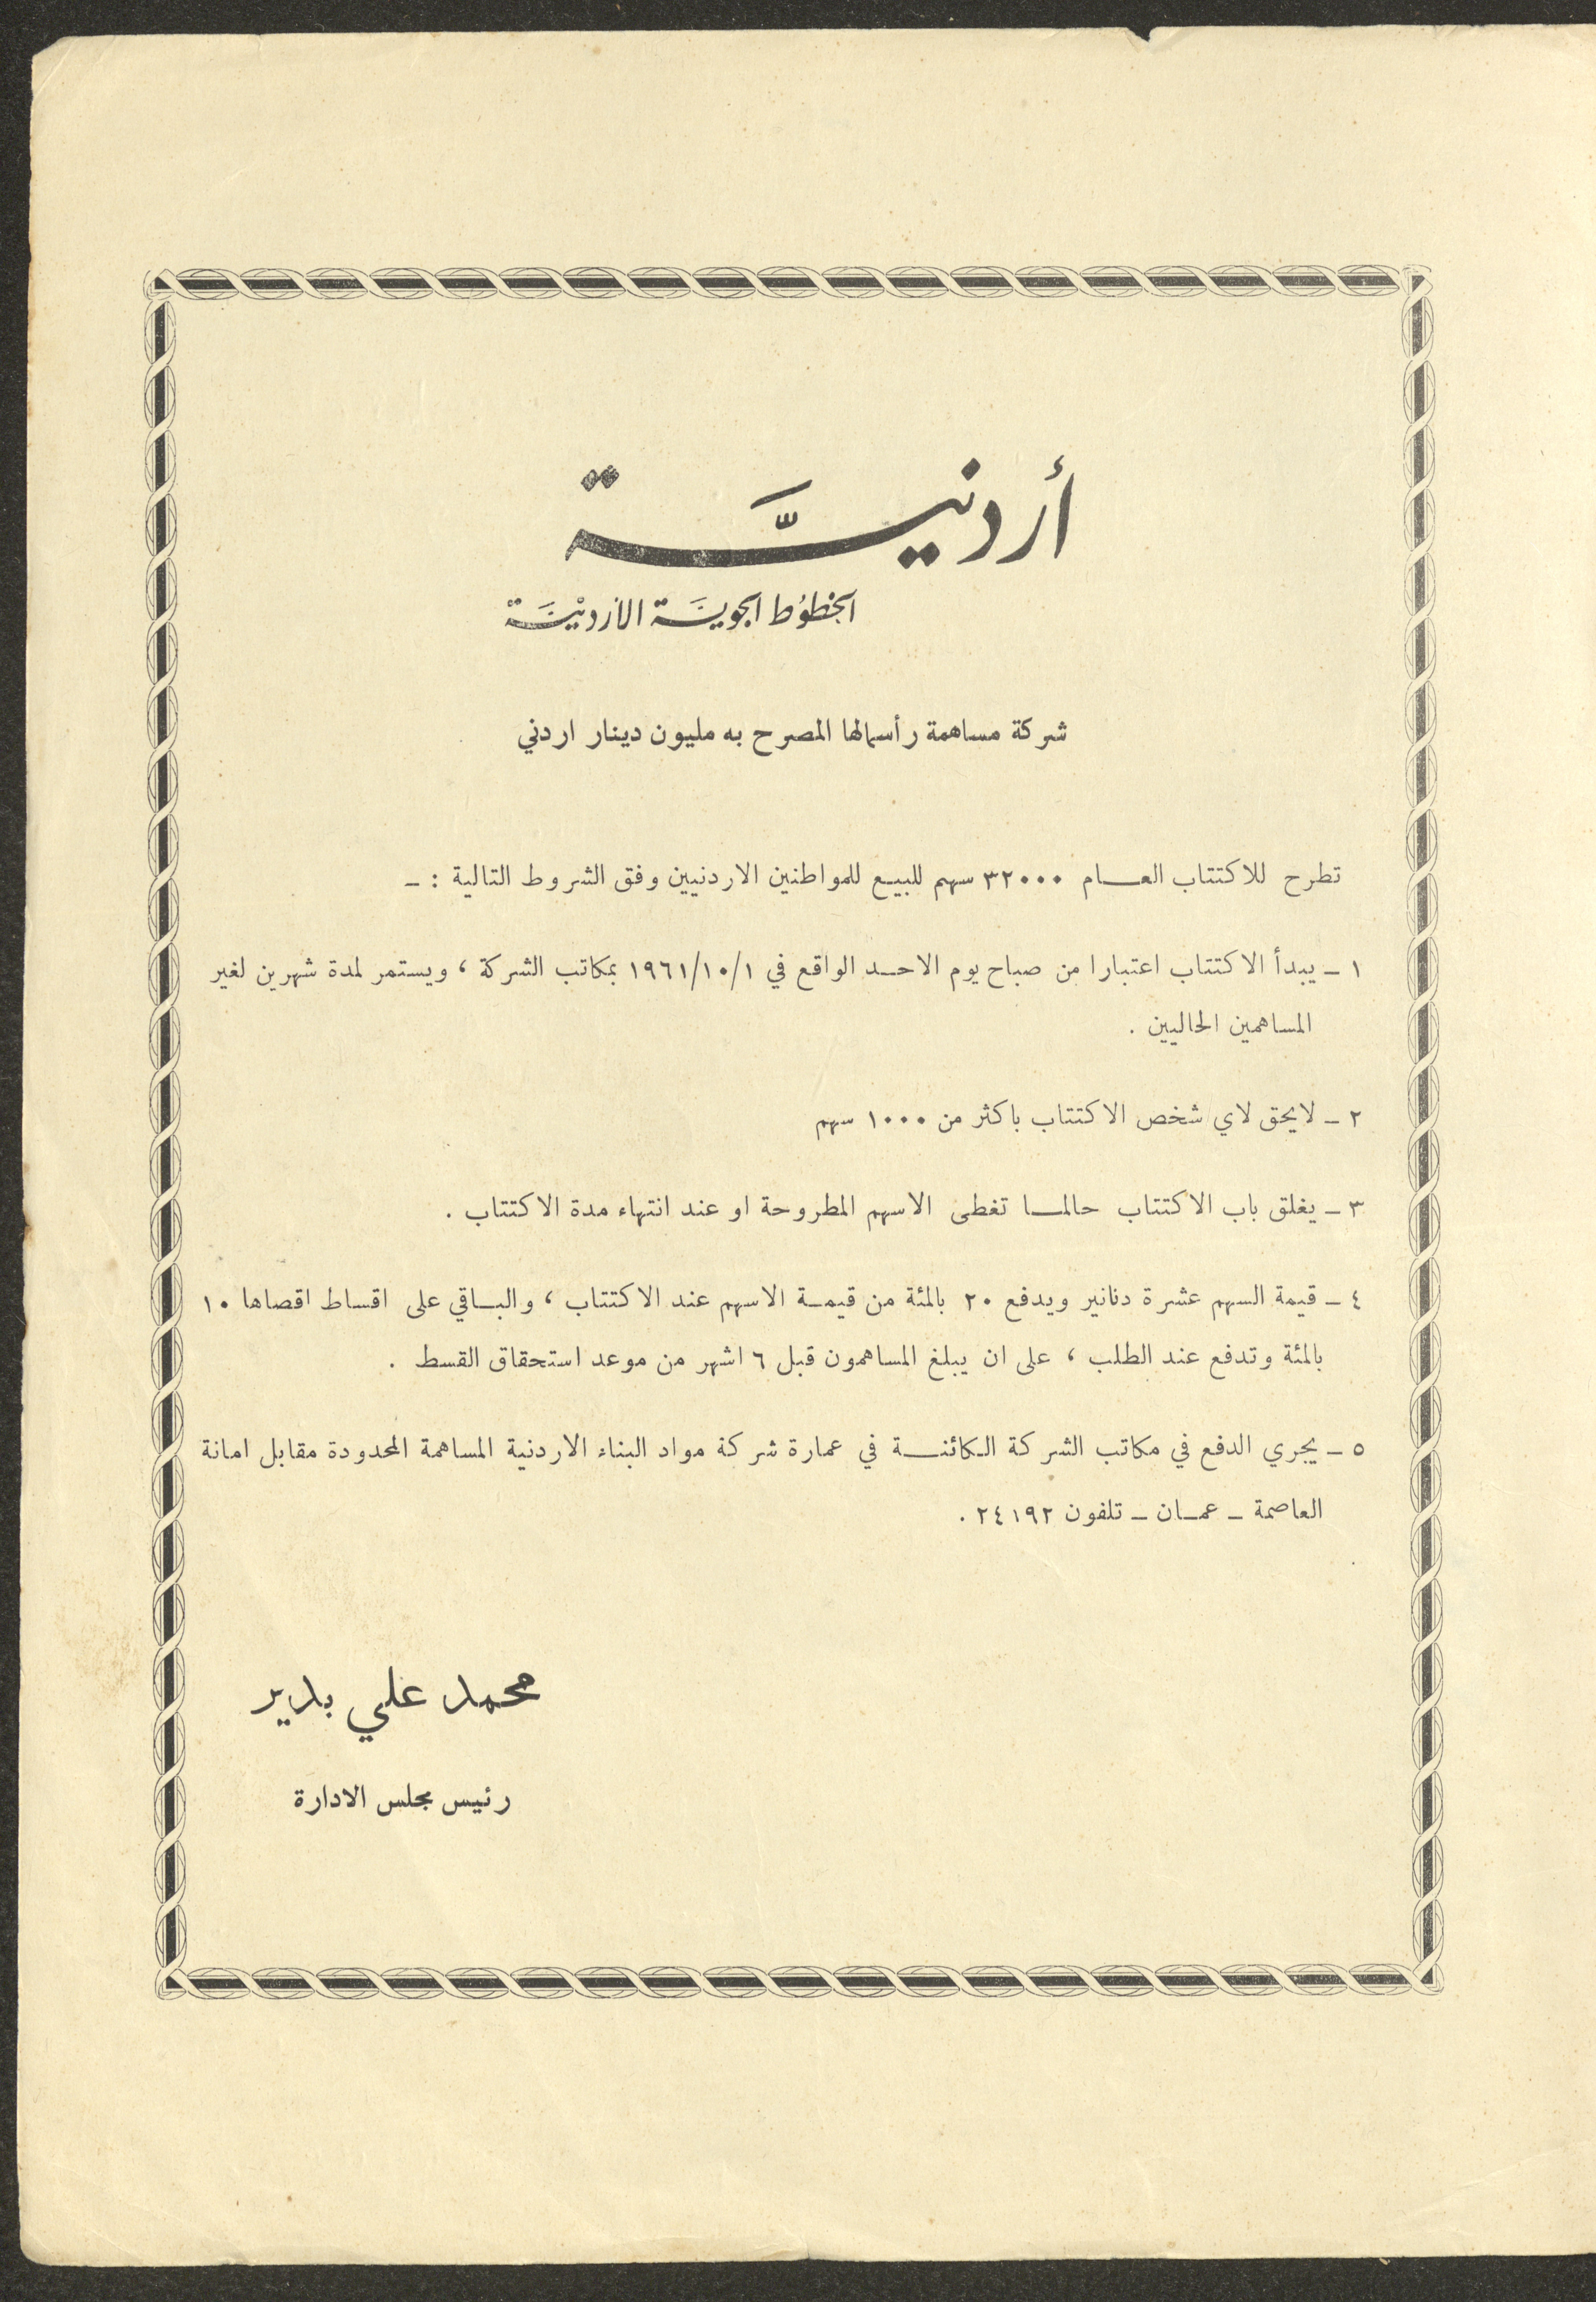 أردنيَّة
الخطوط الجوية الأردنية
شركة مساهمة رأسمالها المصرح به مليون دينار اردني
تطرح للاكتتاب العام ٣٢٠٠٠ سهم للبيع للمواطنين الاردنيين وفق الشروط التالية : –
١ – يبدأ الاكتتاب اعتبارا من صباح يوم الاحد الواقع في ١٩٦١/١٠/١ بمكاتب الشركة ، ويستمر لمدة شهرين لغير
المساهمين الحاليين .
٢ – لايحق لاي شخص الاكتتاب باكثر من ١٠٠٠ سهم
٣ – يغلق باب الاكتتاب حالما تغطى الاسهم المطروحة او عند انتهاء مدة الاكتتاب .
٤ – قيمة السهم عشرة دنانير ويدفع ٢٠ بالمئة من قيمة الاسهم عند الاكتتاب ، والباقي على اقساط اقصاها ١٠
بالمئة وتدفع عند الطلب ، على ان يبلغ المساهمون قبل ٦ اشهر من موعد استحقاق القسط .
٥ – يجري الدفع في مكاتب الشركة الكائنة في عمارة شركة مواد البناء الاردنية المساهمة المحدودة مقابل امانة
العاصمة – عمان – تلفون ٢٤١٩٢ .
محمد علي بدير
رئيس مجلس الادارة